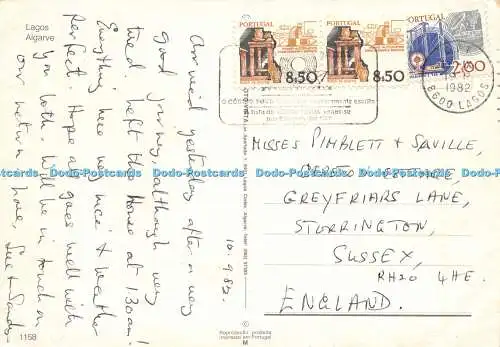 Lagos
Algarve
Arrived yesterday after a very
Good journey, although very
tired left the House at 1.30am!
Everything here very nice & weather
Perfect Hope all goes well with
you both. Will be in touch on
our return love, Sue & Sandy
10.9.82.
1158
PORTUGAL
8.50
PORTUGAL
8.50
PORTUGAL
2.00
1982
8600 LAGOS
MISSES PIMBLETT & SAVILLE,
GREYFRIARS LANE,
STORRINGTON,
SUSSEX,
RH20 4HE.
ENGLAND.
©
Reprodução proibida
Impresso em Portugal
M
Dodo-Postcards Dodo-Postcards Dodo-Postcards Dodo-Postcards Dodo-Postcards